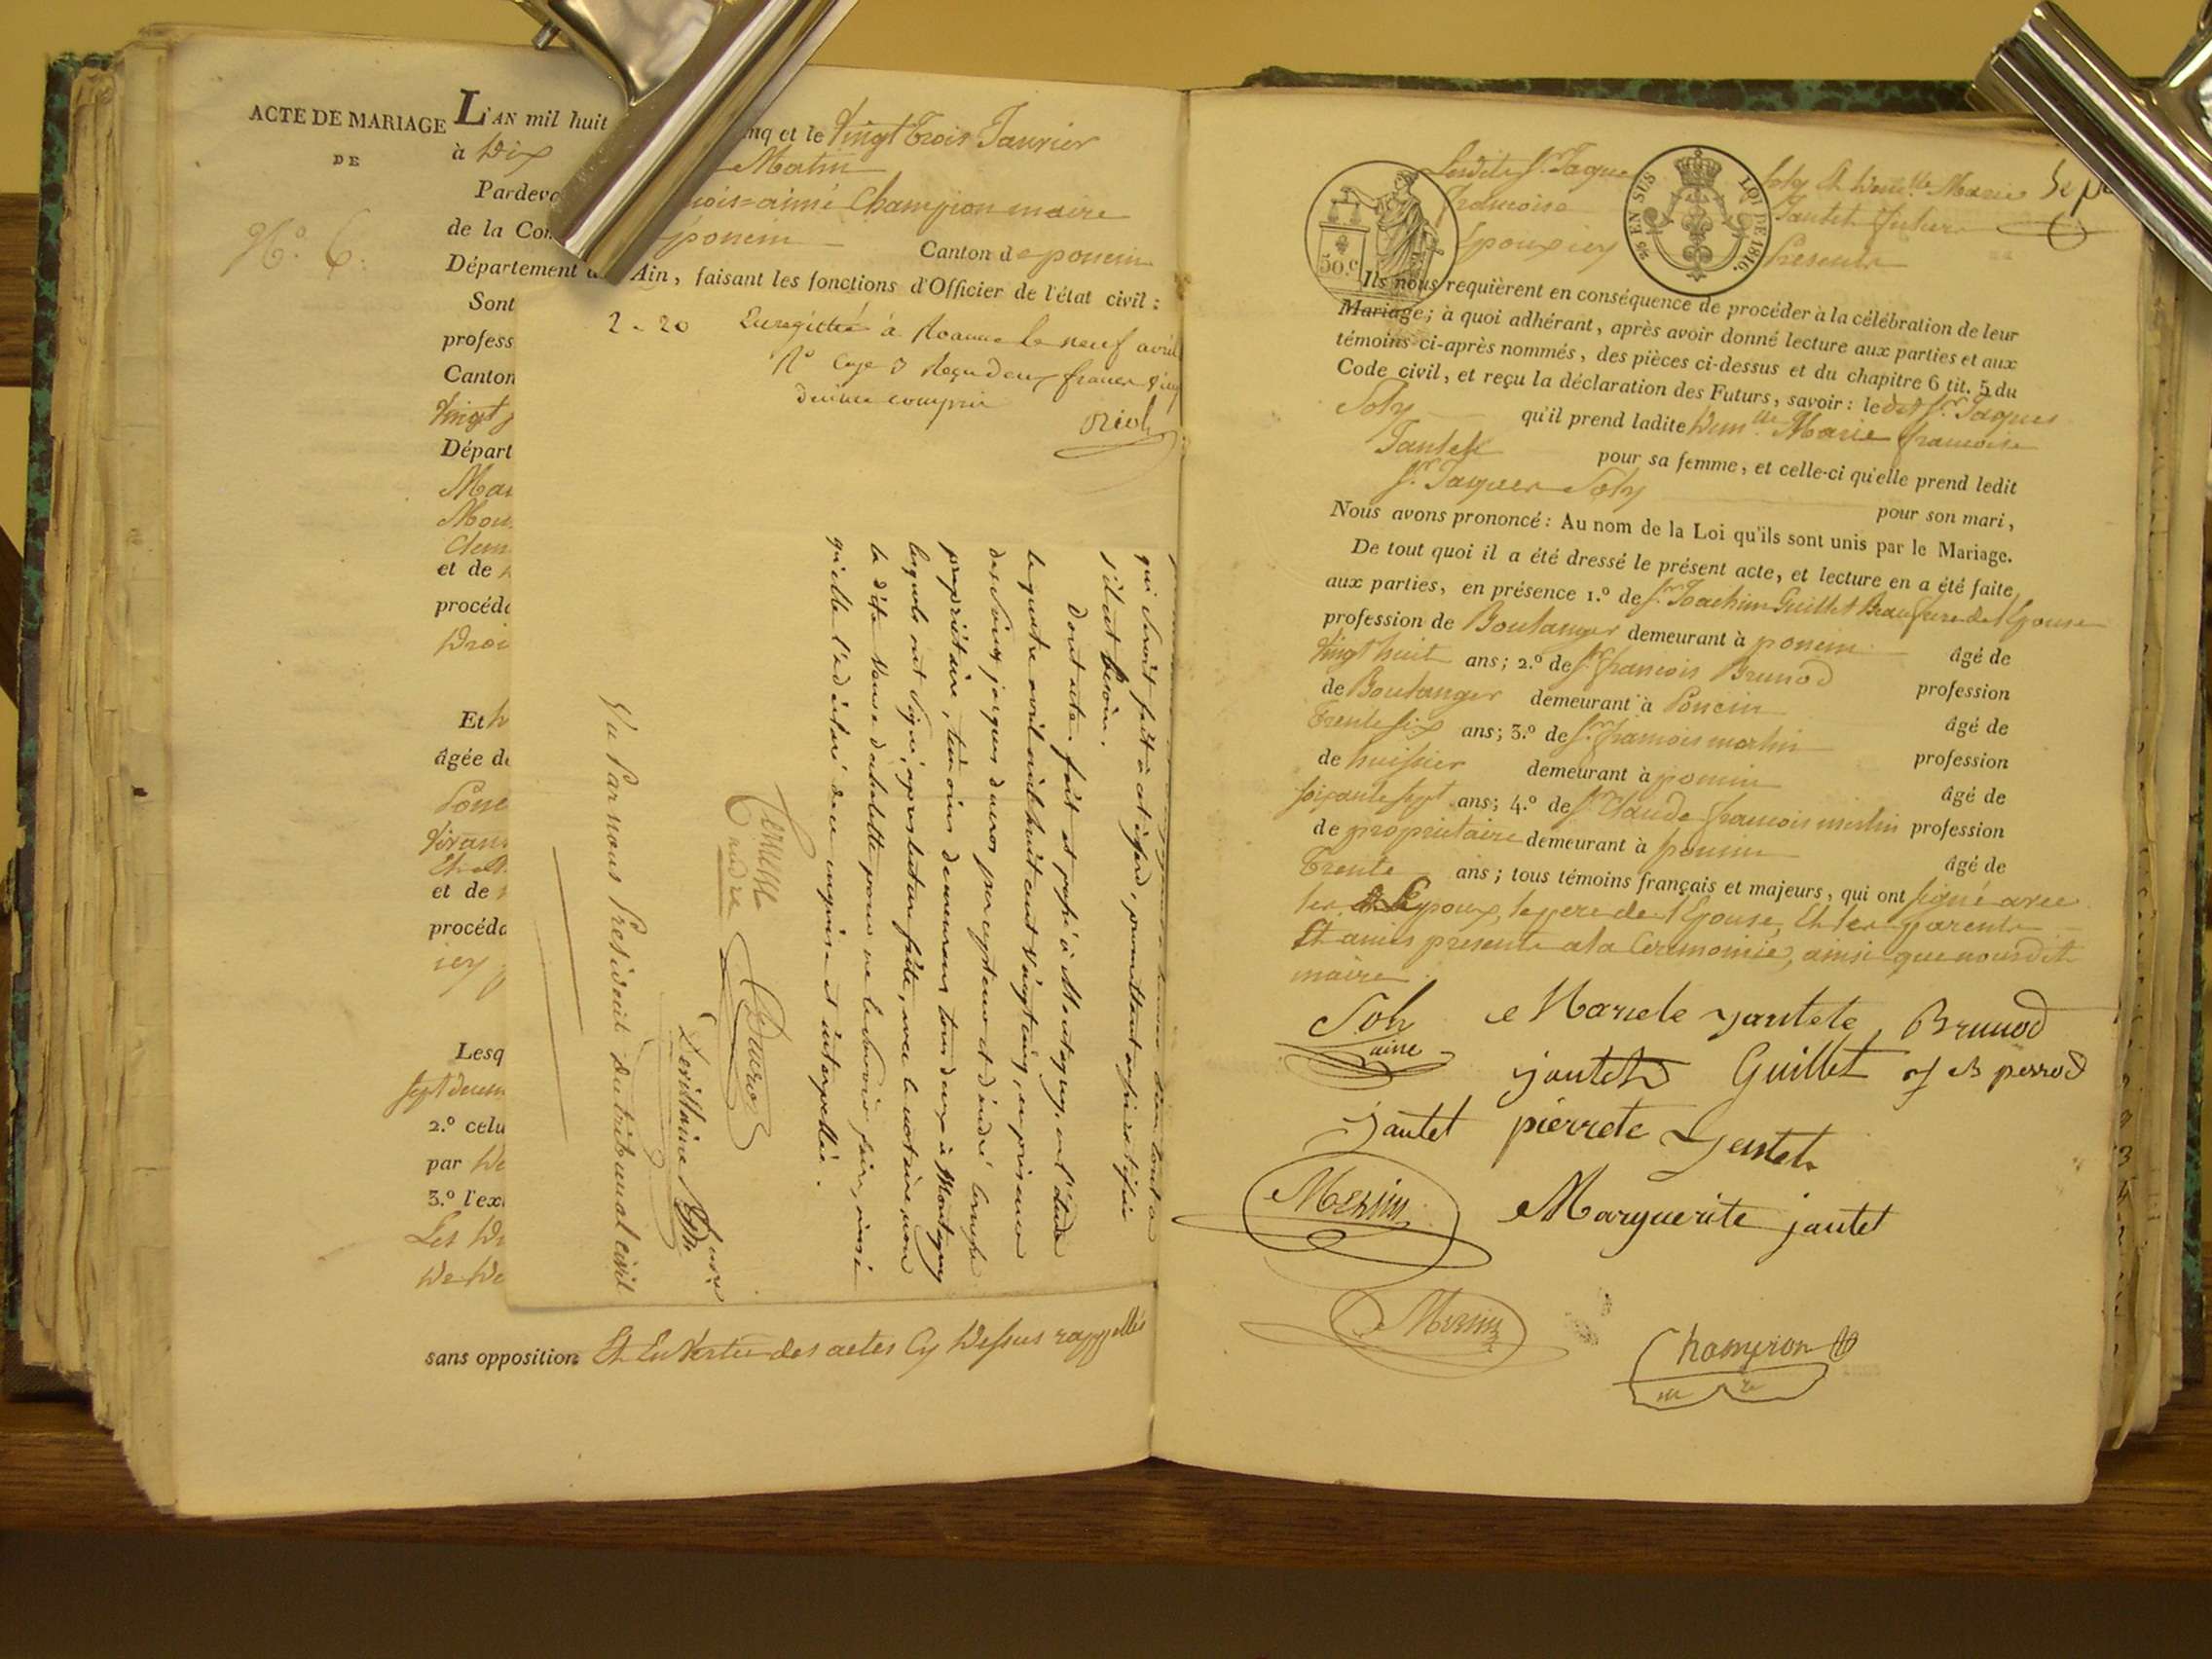 ACTE DE MARIAGE
DE
N.º 6.
L'AN mil huit
nq et le Vingt trois Janvier
à Dix
Matin
Pardeva
nçois-aimé Champion maire
de la Com
poncin
Canton de poncin
Département de
Ain, faisant les fonctions d'Officier de l'état civil :
Sont
profess
Canton
Vingt
Départ
Mar
Mon
Clem
et de
procéda
Droi
Et
âgée de
Ponc
et de
procéda
Lesq
sept decem
2.º celu
par De
3.º l'ex
Les
De
sans opposition Et En Vertu des actes Cy Dessus rappellés
2 - 20 Enregistré à Roanne le neuf avril
Reçu deux francs vingt
decime compris
qui seroit fait à cet égard, promettant
s'il est besoin.
Dont acte. fait et passé à Montagny, en l'étude
le quatre avril mil huit cent vingt cinq, en présence
des sieurs jacques duvos percepteur et d'andré
propriétaire, témoins demeurans tous deux à Montagny
lesquels ont signé, après lecture faite, avec le notaire, non
la dite veuve pour ne le savoir faire, ainsi
qu'elle l'a déclaré de ce enquise et interpellée.
andré
Vu Par nous President du tribunal civil
50.c
25 EN SUS
LOI DE 1816.
Lesdits Sr. Jaques Soly Et Demlle Marie
Francoise Jantet futurs
Epoux icy Presents
Ils nous requièrent en conséquence de procéder à la célébration de leur
Mariage ; à quoi adhérant, après avoir donné lecture aux parties et aux
témoins ci-après nommés, des pièces ci-dessus et du chapitre 6 tit. 5 du
Code civil, et reçu la déclaration des Futurs, savoir : ledit Sr. Jaques
Soly qu'il prend ladite Demlle Marie francoise
Jantet pour sa femme, et celle-ci qu'elle prend ledit
Sr. Jaques Soly pour son mari,
Nous avons prononcé : Au nom de la Loi qu'ils sont unis par le Mariage.
De tout quoi il a été dressé le présent acte, et lecture en a été faite
aux parties, en présence 1.º de Sr. Joachim Guillet Beaufrere de l'Epouse
profession de Boulanger demeurant à poncin âgé de
Vingt huit ans ; 2.º de Sr. francois Brunod profession
de Boulanger demeurant à Poncin âgé de
Trente six ans ; 3.º de Sr. francois merlin profession
de huissier demeurant à poncin âgé de
soixante sept ans ; 4.º de Sr. Claude francois merlin profession
de proprietaire demeurant à poncin âgé de
Trente ans ; tous témoins français et majeurs, qui ont signé avec
les Epoux, le pere de l'Epouse, Et les parents
Et amis presents a la Ceremonie, ainsi que nousdit
maire
Soly
ainé
Mariete jantete
Brunod
jantet
Guillet
perrod
jantet
pierrete
Merlin
Marguerite jantet
Merlin
Champion